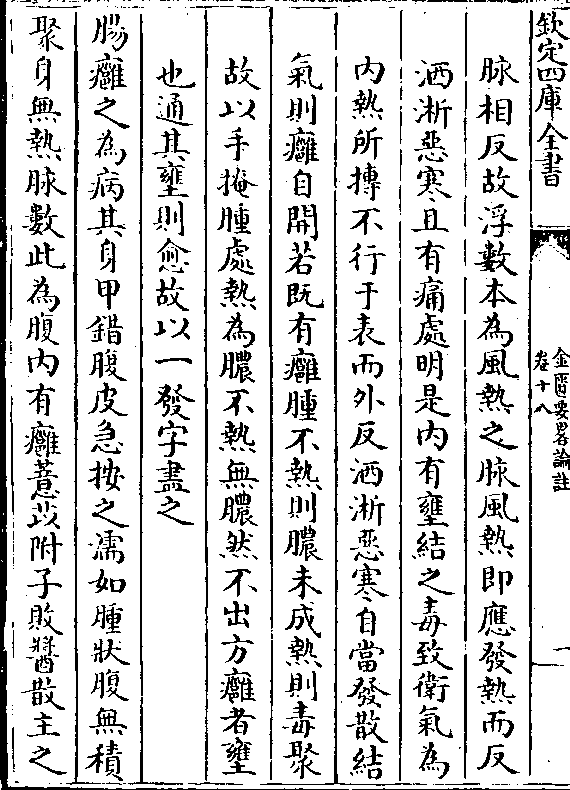 欽定四庫全書
金匱要畧論註
卷十八
脉相反故浮數本為風熱之脉風熱即應發熱而反
洒淅惡寒且有痛處明是内有壅結之毒致衛氣為
内熱所摶不行于表而外反洒淅惡寒自當發散結
氣則癰自開若既有癰腫不熱則膿未成熱則毒聚
故以手掩腫處熱為膿不熱無膿然不出方癰者壅
也通其壅則愈故以一發字盡之
腸癰之為病其身甲錯腹皮急按之濡如腫狀腹無積
聚身無熱脉數此為腹内有癰薏苡附子敗醬散主之